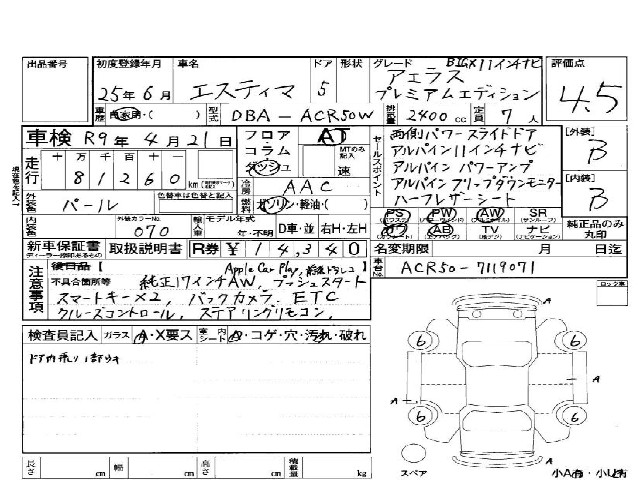 出品番号
初度登録年月 25年6月
車名 エスティマ
ドア 5
形状
グレード BIG X 11インチナビ
アエラス
プレミアムエディション
評価点 4.5
車歴 自家用・( )
型式 DBA-ACR50W
排気量 2400cc
定員 7人
車検 R9年4月21日
フロア・コラム・ダッシュ
AT
MTのみ記入
速
セールスポイント
両側パワースライドドア
アルパイン11インチナビ
アルパイン パワーアンプ
アルパイン フリップダウンモニター
ハーフレザーシート
[外装] B
[内装] B
走行 十万千百十
81260km
冷房 AAC
外装色 パール
色替車は色替と記入
燃料 ガソリン・軽油・( )
PS PW AW SR
カワ AB TV ナビ
純正品のみ丸印
内装色
外装カラーNo. 070
輸入車 モデル年式
年・不明
D車・並
右H・左H
新車保証書
取扱説明書
R券 ¥14,340
名変期限 月 日迄
注意事項
後日品【Apple Car Play, 前後ドラレコ】
不具合箇所等
純正17インチAW, プッシュスタート
スマートキー×2, バックカメラ, ETC
クルーズコントロール, ステアリングリモコン,
車台No. ACR50-7119071
ロック車
検査員記入
ガラス A・X要ス
室内シート A・コゲ・穴・汚れ・破れ
ドア内張り1部ウキ
A
6 6
A A
6 6
A
スペア
小A有・小U有
長さ cm 幅 cm 高さ cm 積載量 kg